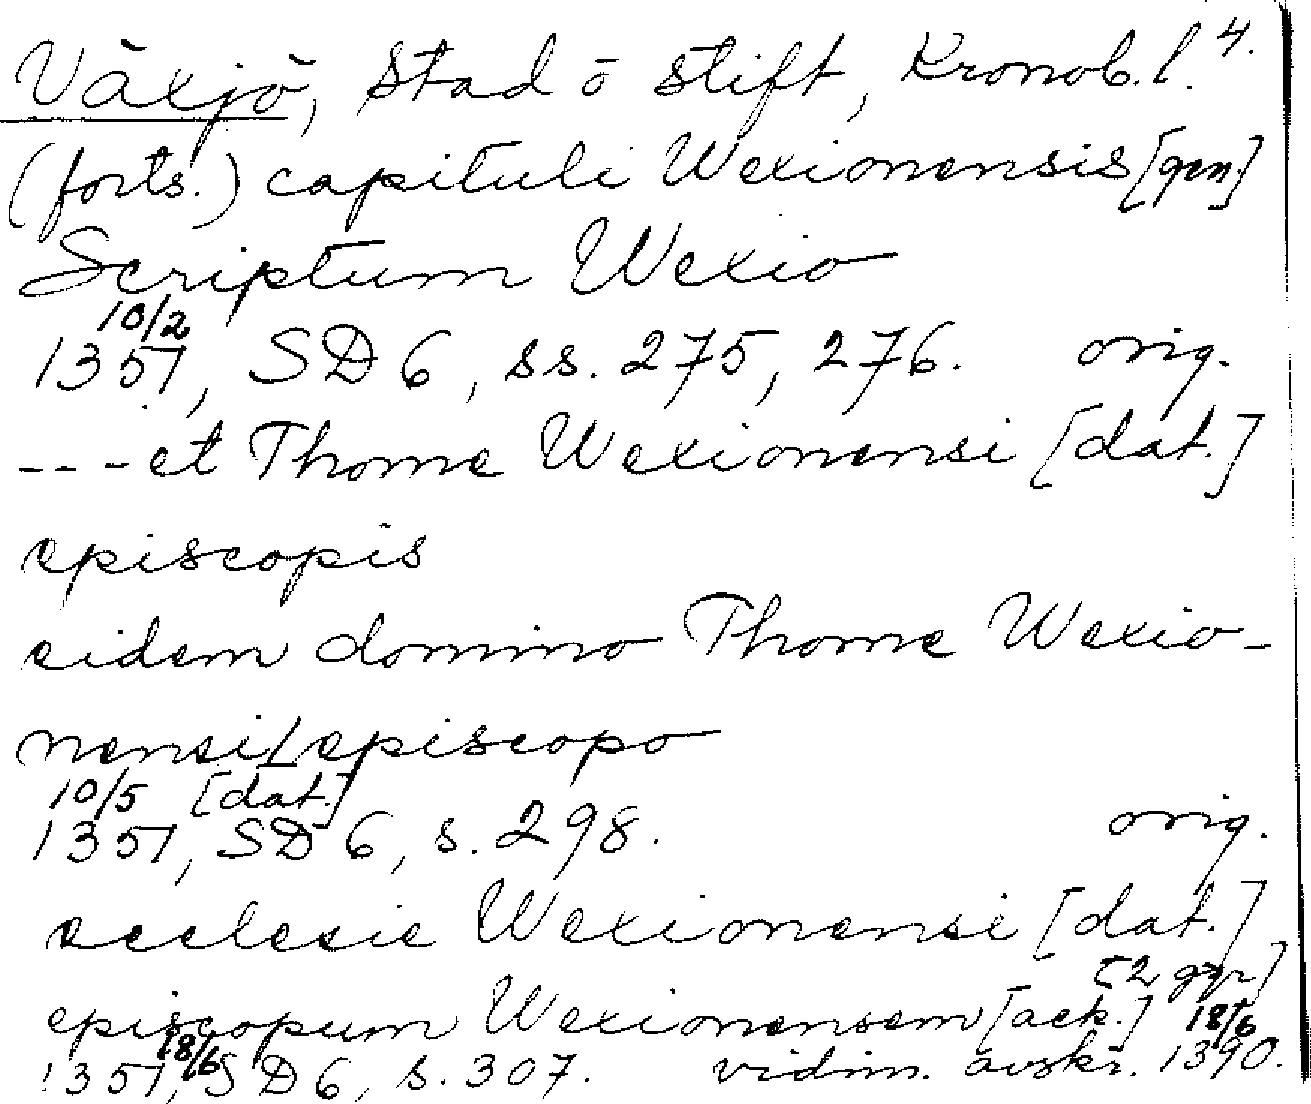 Växjö, stad o stift, Kronob. l. 4.
(forts.) capituli Wexionensis [gen.]
Scriptum Wexio
10/2
1351, SD 6, ss. 275, 276. orig.
--- et Thome Wexionensi [dat.]
episcopis
eidem domino Thome Wexio-
nensi episcopo
10/5 [dat.]
1351, SD 6, s. 298. orig.
ecclesie Wexionensi [dat.]
[2 ggr]
episcopum Wexionensem [ack.] 18/6
18/6
1351, SD 6, s. 307. vidim. avskr. 1390.